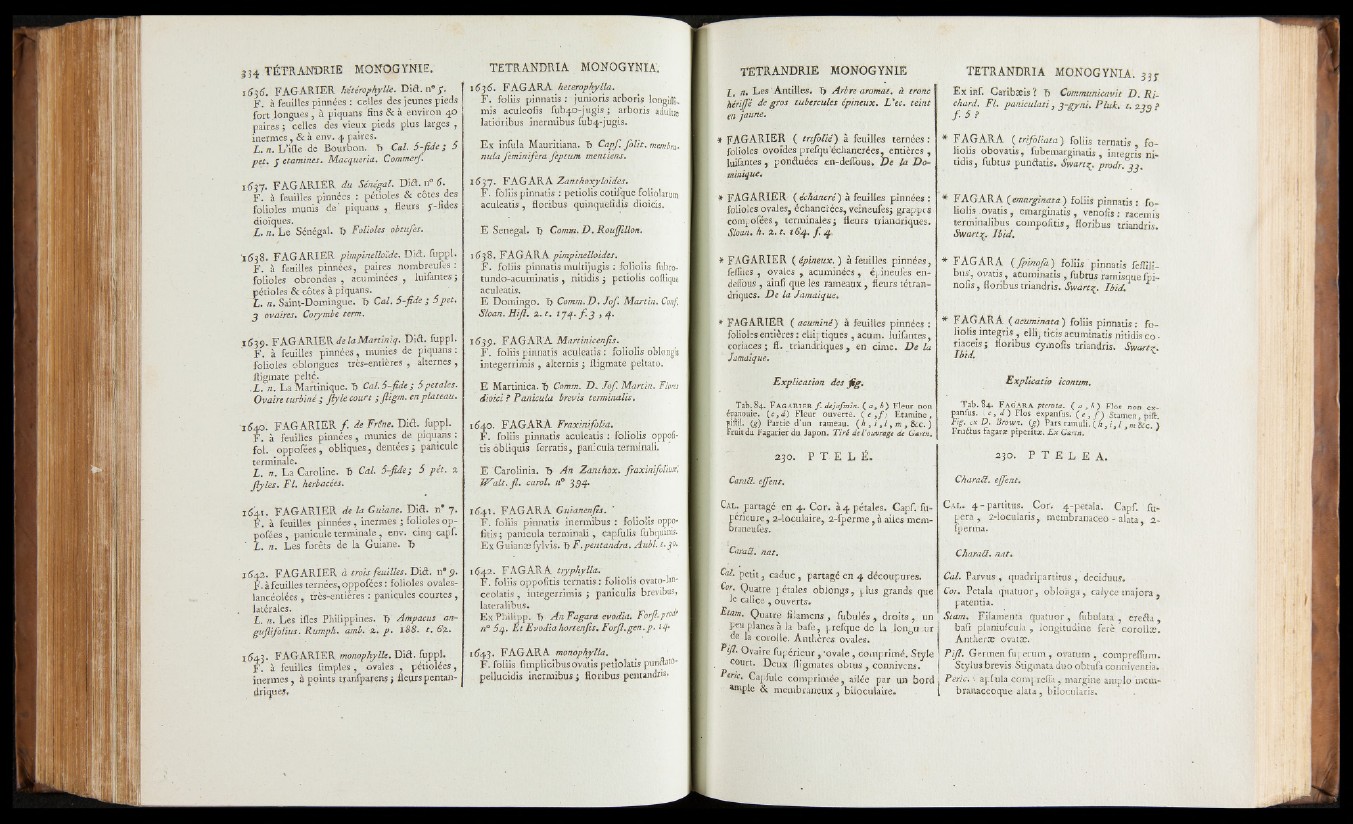 334 TÉTRANDRIE MONOGYNIE.
1636. FAGARIER hétérophylle. Dict. n° 5.
F. à feuilles pinnées : celles des jeunes pieds
fort longues, à piquans fins & à environ 40
paires ; celles des vieux pieds plus larges,
inermes, & à env. 4 paires.
L. n. L'isle de Bourbon. ♄ Cal. 5-fide ; 5
pet. 5 etamines. Macqueria. Commerf.
1637. FAGARIER du Sénégal. Dict. n° 6.
F. à feuilles pinnées : pétioles & côtes des
folioles munis de piquans, fleurs 5-fides
dioïques.
L. n. Le Sénégal. ♄ Folioles obtuses.
1638. FAGARIER pimpinelloïde. Dict. suppl.
F. à feuilles pinnées, paires nombreuses :
folioles obrondes, acuminées, luisantes ;
pétioles & côtes à piquans.
L. n. Saint-Domingue. ♄ Cal. 5-fide ; 5 pet.
3 ovaires. Corymbe term.
1639. FAGARIER de la Martiniq. Dict. suppl.
F. à feuilles pinnées, munies de piquans :
folioles oblongues très-entières, alternes,
stigmate pelté.
L. n. La Martinique. ♄ Cal. 5-fide ; 5 petales.
Ovaire turbiné ; style court ; stigm. en plateau.
1640. FAGARIER f. de Frêne. Dict. suppl.
F. à feuilles pinnées, munies de piquans :
fol. opposées, obliques, dentées ; panicule
terminale.
L. n. La Caroline. ♄ Cal. 5-fide ; 5 pét. 2
styles. Fl. herbacées.
1641. FAGARIER de la Guiane. Dict. n° 7.
F. à feuilles pinnées, inermes ; folioles op-
posées, panicule terminale, env. cinq caps.
L. n. Les forêts de la Guiane. ♄
1642. FAGARIER à trois feuilles. Dict. n° 9.
F. à feuilles ternées, opposées : folioles ovales-
lancéolées, très-entières : panicules courtes,
latérales.
L. n. Les isles Philippines. ♄ Ampacus an-
gustifolius. Rumph. amb. 2. p. 188. t. 62.
1643. FAGARIER monophylle. Dict. suppl.
F. à feuilles simples, ovales, pétiolées,
inermes, à points transparens ; fleurs pentan-
driques.
TETRANDRIA MONOGYNIA.
1636. FAGARA heterophylla.
F. foliis pinnatis : junioris arboris longiss.
mis aculeosis sub40-jugis ; arboris adultæ
latioribus inermibus sub4-jugis.
Ex insula Mauritiana. ♄ Caps. solit. membra-
nula seminifera septum mentiens.
1637. FAGARA Zanthoxyloides.
F. foliis pinnatis : petiolis costisque foliolarum
aculeatis, floribus quinquefidis dioicis.
E Senegal. ♄ Comm. D. Roussillon.
1638. FAGARA pimpinelloides.
F. foliis pinnatis multijugis : foliolis subro-
tundo-acuminatis, nitidis ; petiolis costisque
aculeatis.
E Domingo. ♄ Comm. D. Jos. Martin. Conf.
Sloan. Hist. 2. t. 174. f. 3, 4.
1639. FAGARA Martinicensis.
F. foliis pinnatis aculeatis : foliolis oblongis
integerrimis, alternis ; stigmate peltato.
E Martinica. ♄ Comm. D. Jos. Martin. Flores
dioici ? Panicula brevis terminalis.
1640. FAGARA Fraxinifolia.
F. foliis pinnatis aculeatis : foliolis opposi-
tis obliquis serratis, panicula terminali.
E Carolinia. ♄ An Zanthox. fraxinifolium.
Walt. fl. carol. n° 394.
1641. FAGARA Guianensis.
F. foliis pinnatis inermibus : foliolis oppo-
sitis ; panicula terminali, capsulis subquinis.
Ex Guianæ sylvis. ♄ F. pentandra. Aubl. t. 30.
1642. FAGARA tryphylla.
F. foliis oppositis ternatis : foliolis ovato-lan-
ceolatis, integerrimis ; paniculis brevibus,
lateralibus.
Ex Philipp. ♄ An Fagara evodia. Forst. prod.
n° 54. Et Evodia hortensis. Forst. gen. p. 14.
1643. FAGARA monophylla.
F. foliis simplicibus ovatis petiolatis punctato-
pellucidis inermibus ; floribus pentandris.
TÉTRANDRIE MONOGYNIE
L. n. Les Antilles. ♄ Arbre aromat. à tronc
hérissé de gros tubercules épineux. L'ec. teint
en jaune.
* FAGARIER ( trifolié ) à feuilles ternées :
folioles ovoïdes presqu'échancrées, entières,
luisantes, ponctuées en-dessous. De la Do-
minique.
* FAGARIER ( échancré ) à feuilles pinnées :
folioles ovales, échancrées, veineuses ; grappes
composées, terminales ; fleurs triandriques.
Sloan. h. 2. t. 164. f. 4.
* FAGARIER ( épineux. ) à feuilles pinnées,
sessiles, ovales, acuminées, épineuses en-
dessous, ainsi que les rameaux, fleurs tétran-
driques. De la Jamaique.
* FAGARIER ( acuminé ) à feuilles pinnées :
folioles entières : elliptiques, acum. luisantes,
coriaces ; fl. triandriques, en cime. De la
Jamaïque.
Explication des fig.
Tab. 84. FAGARIER f. de jasmin. ( a, b ) Fleur non
épanouie. ( c, d ) Fleur ouverte. ( e, f ) Etamine,
pistil. ( g ) Partie d'un rameau. ( h, i, l, m, &c. )
Fruit du Fagarier du Japon. Tiré de l'ouvrage de Gaertn.
230. PTELÉ.
Caract. essent.
CAL. partagé en 4. Cor. à 4 pétales. Caps. su-
périeure, 2-loculaire, 2-sperme, à ailes mem-
braneuses.
Caract. nat.
Cal. petit, caduc, partagé en 4 découpures.
Cor. Quatre pétales oblongs, plus grands que
le calice, ouverts.
Etam. Quatre filamens, subulés, droits, un
peu planes à la base, presque de la longueur
de la corolle. Anthères ovales.
Pist. Ovaire supérieur, ovale, comprimé. Style
court. Deux stigmates obtus, connivens.
Peric. Capsule comprimée, ailée par un bord
ample & membraneux, biloculaire.
TETRANDRIA MONOGYNIA. 335
Ex ins. Caribæis ? ♄ Communicavit D. Ri-
chard. Fl. paniculati, 3-gyni. Pluk. t. 239 ?
f. 5 ?
* FAGARA ( trifoliata ) foliis ternatis, fo-
liolis obovatis, subemarginatis, integris ni-
tidis, subtus punctatis. Swartz. prodr. 33.
* FAGARA ( emarginata ) foliis pinnatis : fo-
liolis ovatis, emarginatis, venosis : racemis
terminalibus compositis, floribus triandris.
Swartz. Ibid.
* FAGARA ( spinosa ) foliis pinnatis sessili-
bus, ovatis, acuminatis, subtus ramisque spi-
nosis, floribus triandris. Swartz. Ibid.
* FAGARA ( acuminata ) foliis pinnatis : fo-
liolis integris, ellipticis acuminatis nitidis co-
riaceis ; floribus cymosis triandris. Swartz.
Ibid.
Explicatio iconum.
Tab. 84. FAGARA pterota. ( a, b ) Flos non ex-
pansus. ( c, d ) Flos expansus. ( e, f ) Stamen, pist.
Fig. ex D. Brown. ( g ) Pars ramuli. ( h, i, l, m &c. )
Fructus fagaræ piperitæ. Ex Gærtn.
230. PTELEA.
Charact. essent.
CAL. 4-partitus. Cor. 4-petala. Caps. su-
pera, 2-locularis, membranaceo-alata, 2-
sperma.
Charact. nat.
Cal. Parvus, quadripartitus, deciduus.
Cor. Petala quatuor, oblonga, calyce majora,
patentia.
Stam. Filamenta quatuor, subulata, erecta,
basi planiuscula, longitudine ferè corollæ.
Antheræ ovatæ.
Pist. Germen superum, ovatum, compressum.
Stylus brevis. Stigmata duo obtusa conniventia.
Peric. Capsula compressa, margine amplo mem-
branaceoque alata, bilocularis.